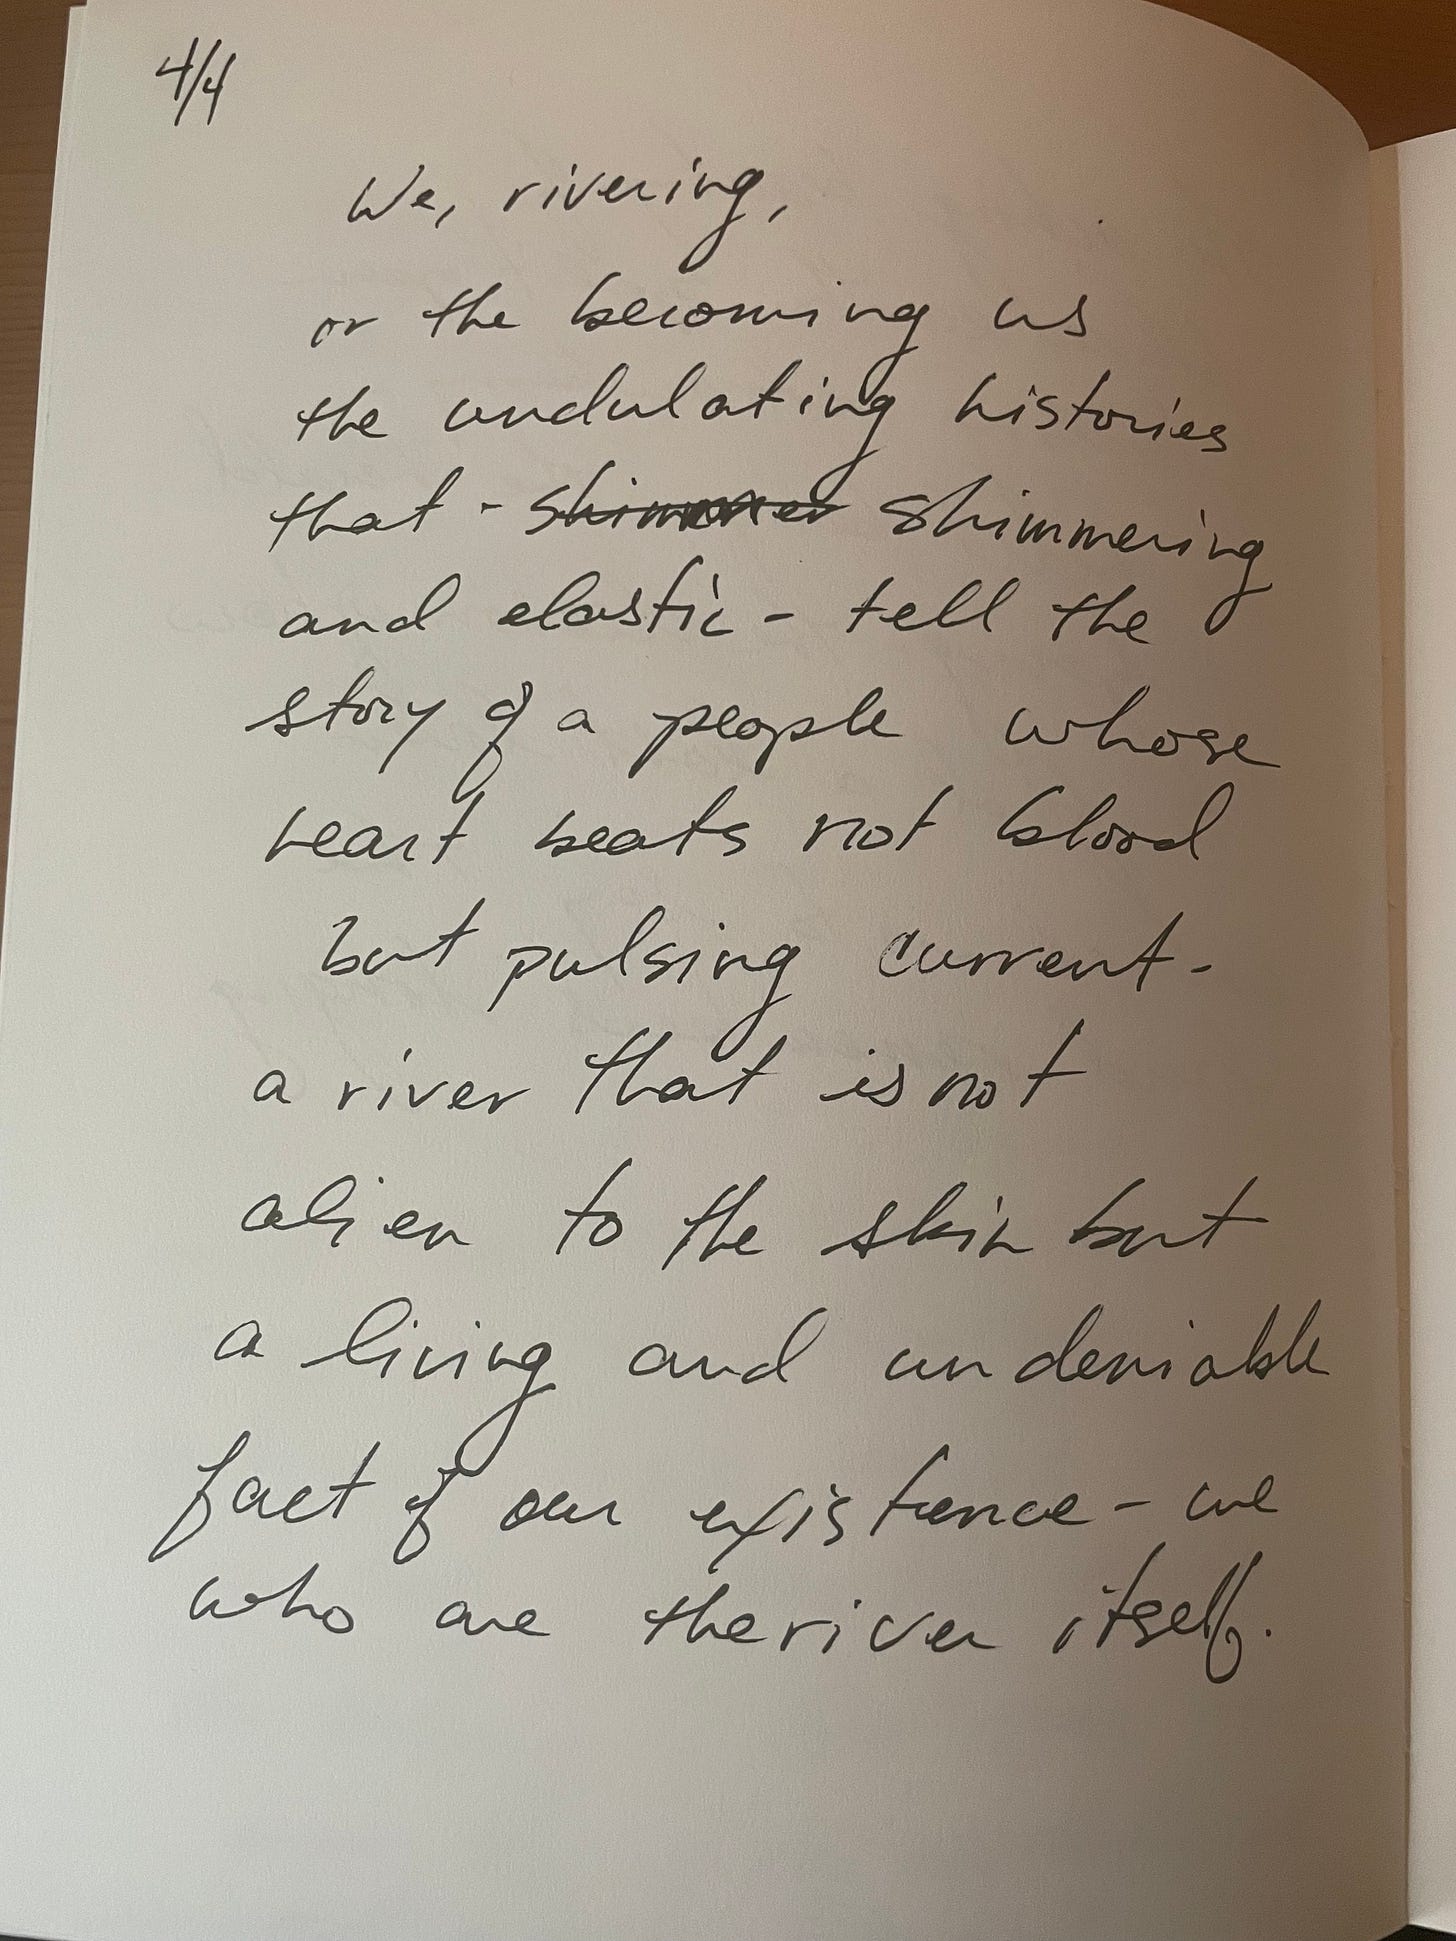 4/4
We, rivering,
or the becoming us
the undulating histories
that - shimmer shimmering
and elastic - tell the
story of a people whose
heart beats not blood
but pulsing current -
a river that is not
alien to the skin but
a living and undeniable
fact of our existence - we
who are the river itself.